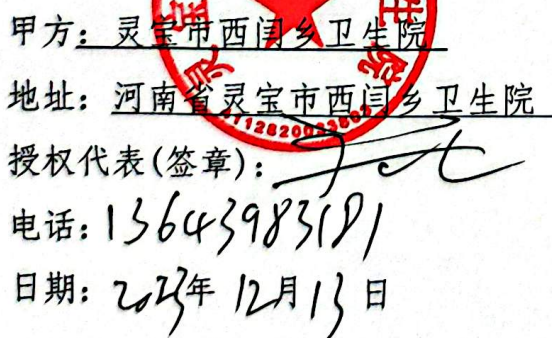 甲方：灵宝市西闫乡卫生院
地址：河南省灵宝市西闫乡卫生院
授权代表(签章)：
电话：13643983181
日期：2023年12月13日